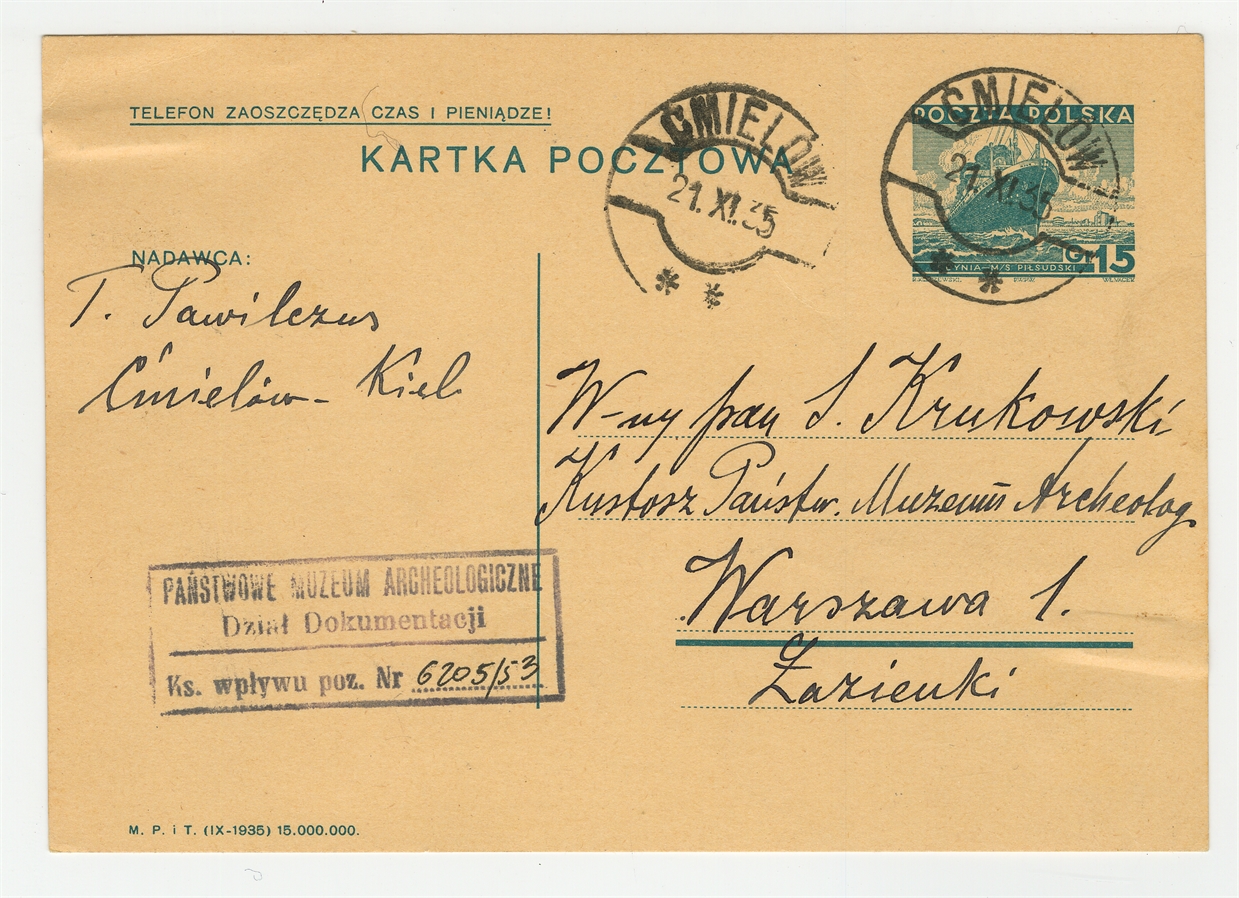 TELEFON ZAOSZCZĘDZA CZAS I PIENIĄDZE!
KARTKA POCZTOWA
ĆMIELÓW
21.XI.35
ĆMIELÓW
21.XI.35
POCZTA POLSKA
GDYNIA-M/S PIŁSUDSKI
G.15
NADAWCA:
T. Pawilczus
Ćmielów - Kiel.
W-ny pan S. Krukowski
Kustosz Państw. Muzeum Archeolog
Warszawa 1.
Łazienki
PAŃSTWOWE MUZEUM ARCHEOLOGICZNE
Dział Dokumentacji
Ks. wpływu poz. Nr 6205/53
M. P. i T. (IX-1935) 15.000.000.